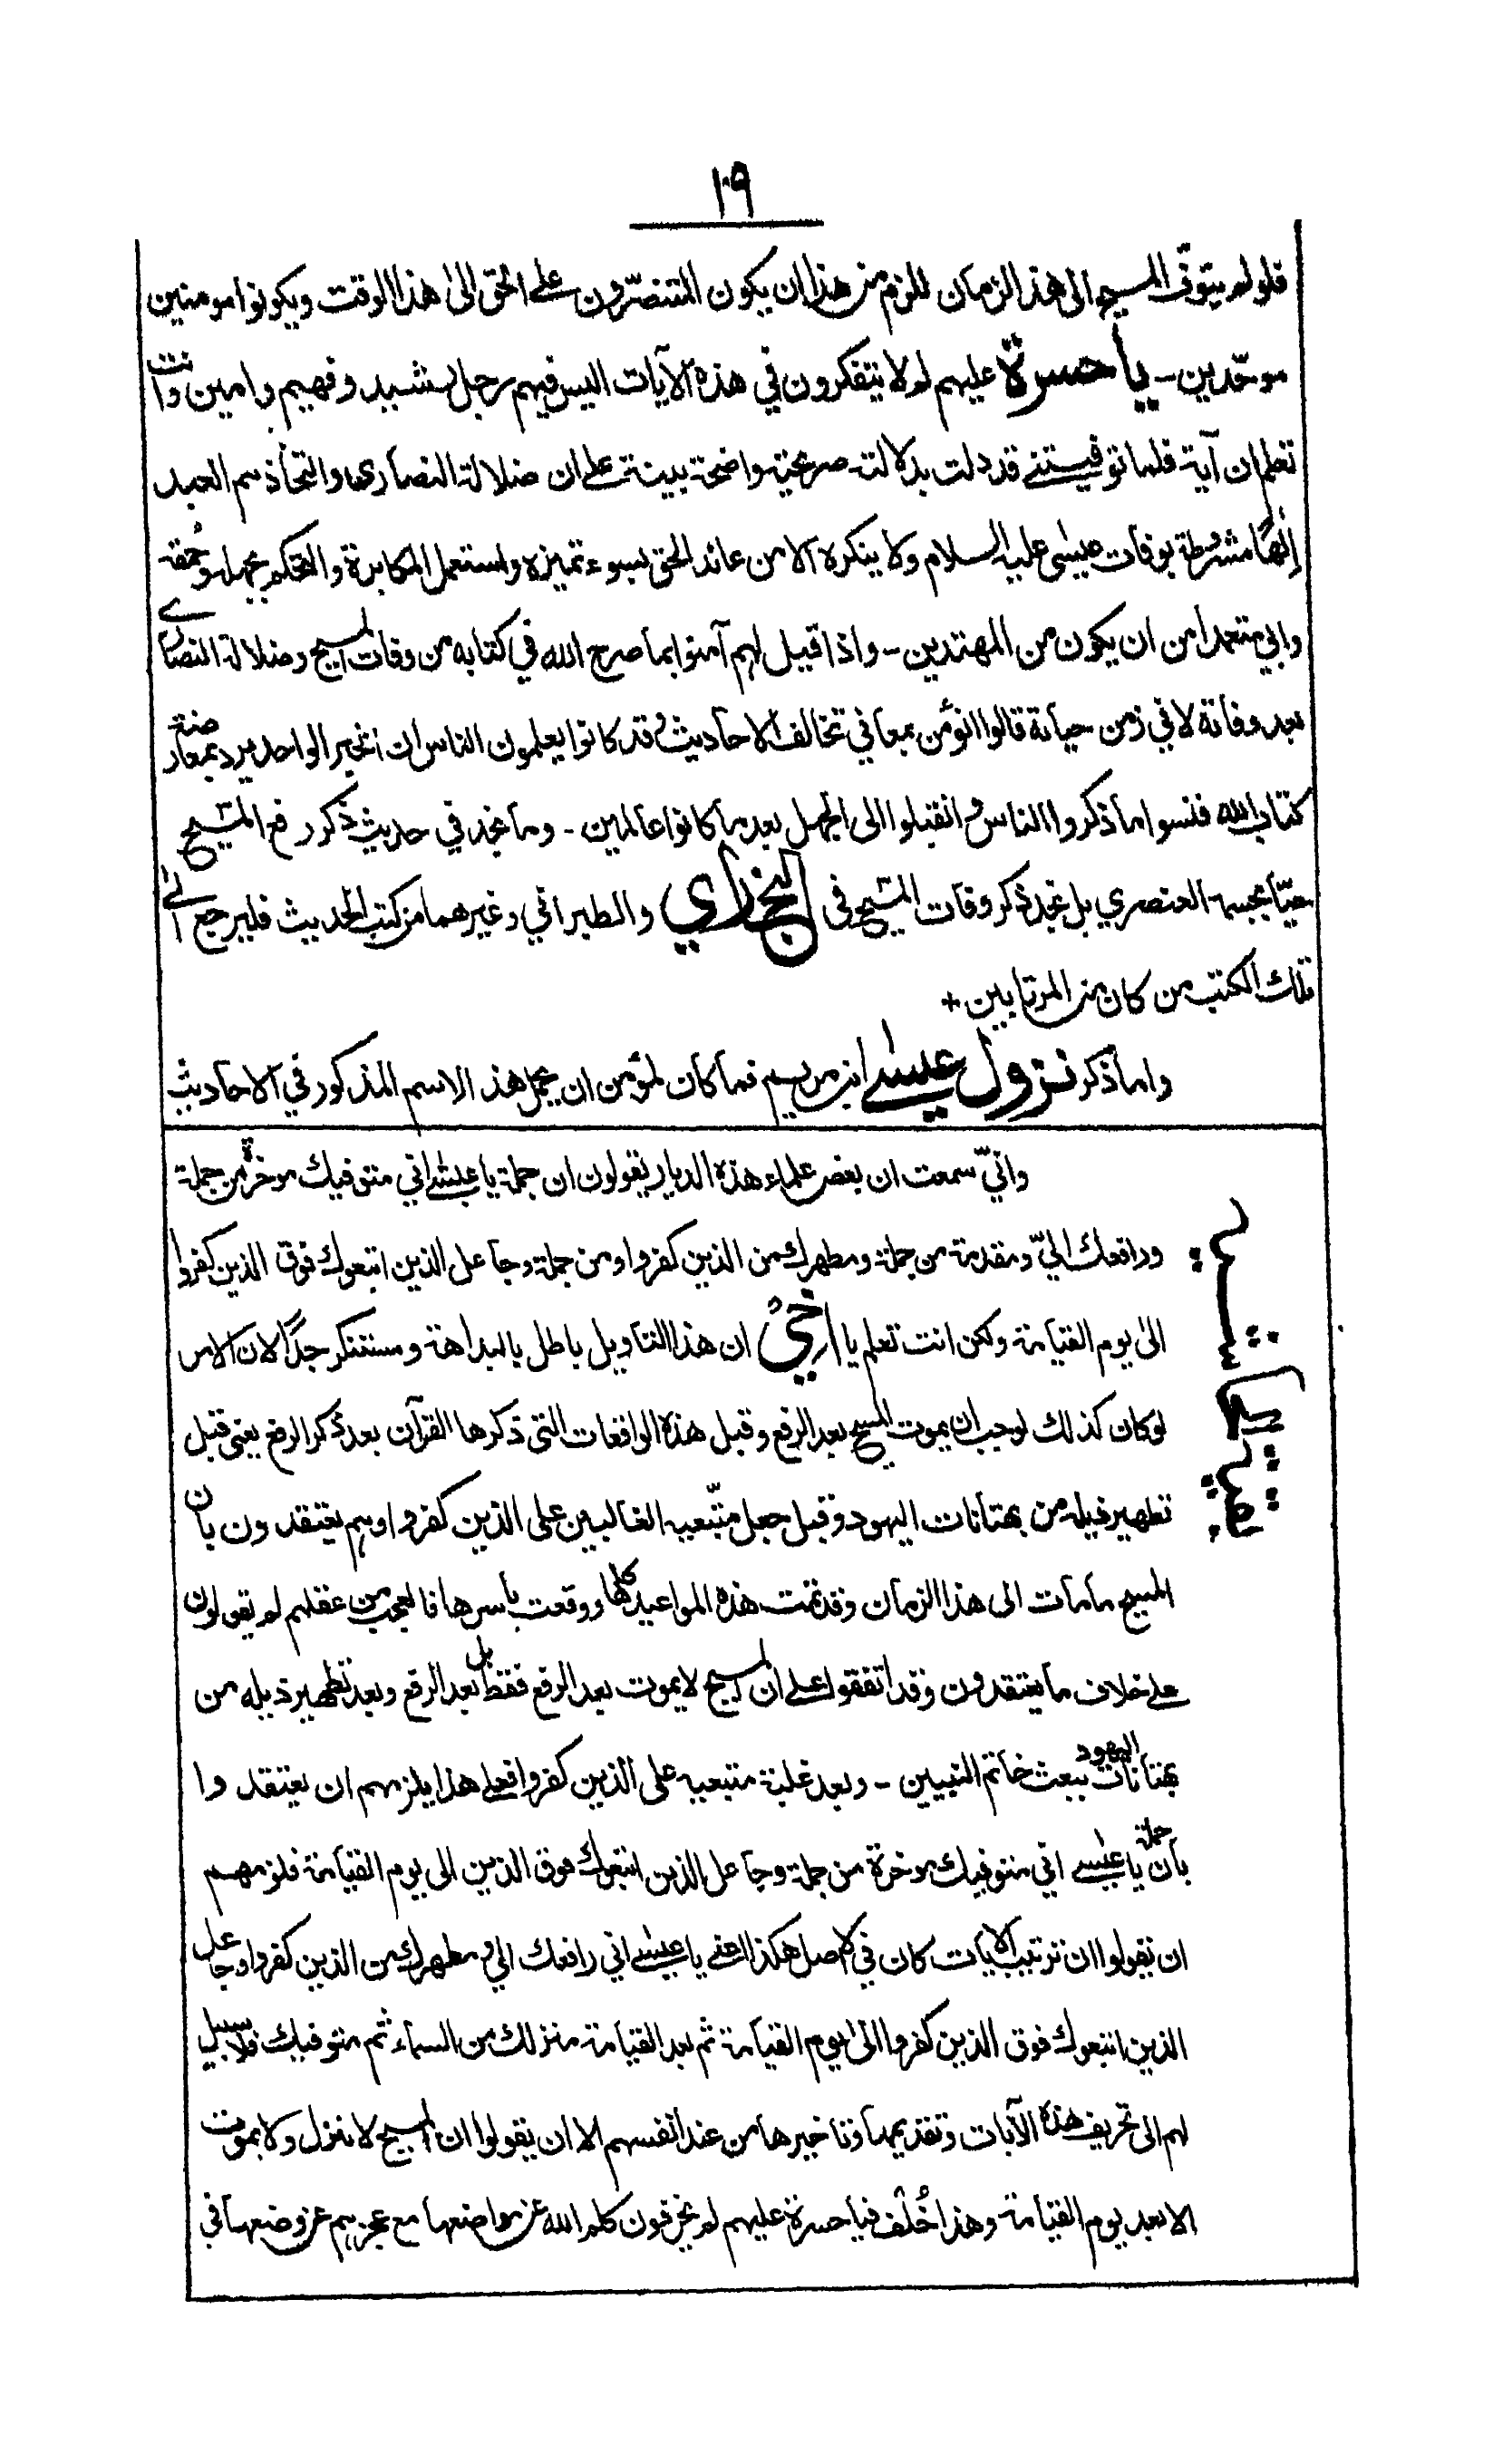 ١٩
فلو لم يتوفّ المسيح الى هذا الزمان للزم من هذا ان يكون المتنصّرون على الحق الى هذا الوقت ويكونوا مومنين
موحّدين - يا حسرة عليهم لم لا يتفكرون في هذه الآيات اليس فيهم رجل رشيد وفهيم وامين وانت
تعلم ان آية فلما توفيتني قد دلت بدلالة صريحة واضحة بينة على ان ضلالة النصارى واتخاذهم العبد
إلٰهًا مشروطة بوفات عيسى عليه السلام ولا ينكره الا من عاند الحق بسوء تميزه واستعمل المكابرة والتحكم بجهله وحمقه
وابى متعمدا من ان يكون من المهتدين - واذا قيل لهم آمنوا بما صرح الله في كتابه من وفات المسيح وضلالة النصارى
بعد وفاته لا في زمن حياته قالوا انؤمن بمعاني تخالف الاحاديث وقد كانوا يعلمون الناس ان الخبر الواحد يرد بمعارضة
كتاب الله فنسوا ما ذكروا الناس وانقبلوا الى الجهل بعد ما كانوا عالمين - وما نجد في حديث ذكر رفع المسيح
حيّا بجسمه العنصري بل نجد ذكر وفات المسيح في البخاري والطبراني وغيرهما من كتب الحديث فليرجع الى
تلك الكتب من كان من المرتابين +
واما ذكر نزول عيسى ابن مريم فما كان لمؤمن ان يحمل هذ الاسم المذكور في الاحاديث
وانيّ سمعت ان بعض علماء هذه الديار يقولون ان جملة يا عيسى اني متوفيك موخرة من جملة
ورافعك اليّ ومقدمة من جملة ومطهرك من الذين كفروا ومن جملة وجاعل الذين اتبعوك فوق الذين كفروا
الى يوم القيامة ولكن انت تعلم يا اخيّ ان هذا التاويل باطل بالبداهة ومستنكر جدًّا لان الامر
لو كان كذلك لوجب ان يموت المسيح بعد الرفع وقبل هذه الواقعات التي ذكرها القرآن بعد ذكر الرفع يعني قبل
تطهير ذيله من بهتانات اليهود وقبل جعل متّبعيه الغالبين على الذين كفروا وهم يعتقدون بان
المسيح ما مات الى هذا الزمان وقد تمت هذه المواعيد كلها ووقعت باسرها فالعجب من عقلهم لم يقولون
على خلاف ما يعتقدون وقد اتفقوا على ان المسيح لا يموت بعد الرفع فقط بل بعد الرفع وبعد تطهير ذيله من
بهتانات اليهود ببعث خاتم النبيين - وبعد غلبة متبعيه على الذين كفروا فعلى هذا يلزمهم ان يعتقدوا
بان جملة يا عيسى اني متوفيك موخرة من جملة وجاعل الذين اتبعوك فوق الذين الى يوم القيامة فلزمهم
ان يقولوا ان ترتيب الآيات كان في الاصل هكذا اعني يا عيسى اني رافعك الي ومطهرك من الذين كفروا وجاعل
الذين اتبعوك فوق الذين كفروا الى يوم القيامة ثم بعد القيامة منزلك من السماء ثم متوفيك فلا سبيل
لهم الى تحريف هذه الآيات وتقديمها وتاخيرها من عند انفسهم الا ان يقولوا ان المسيح لا ينزل ولا يموت
الا بعد يوم القيامة وهذا خُلف فيا حسرة عليهم لم يحرفون كلم الله عن مواضعها مع عجزهم عن وضعها في
بقية حاشية